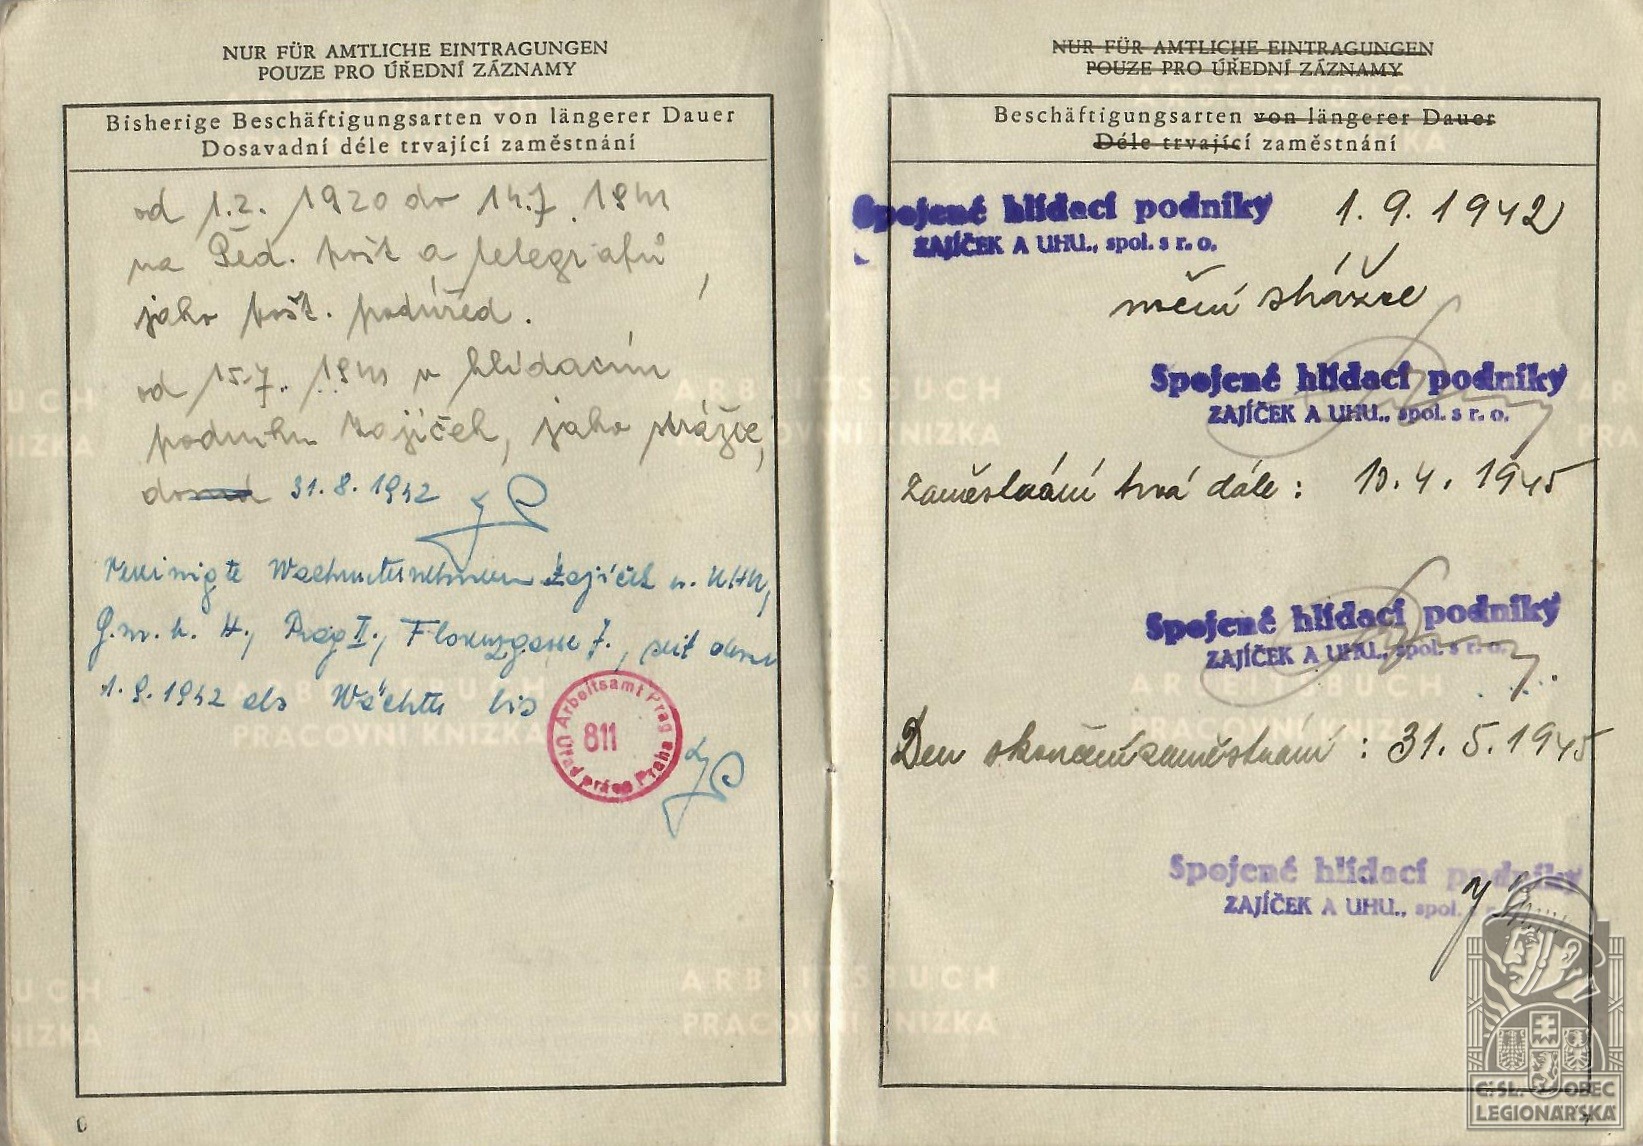 NUR FÜR AMTLICHE EINTRAGUNGEN
POUZE PRO ÚŘEDNÍ ZÁZNAMY
Bisherige Beschäftigungsarten von längerer Dauer
Dosavadní déle trvající zaměstnání
od 1.2. 1920 do 14.7. 1941
na Řed. pošt a telegrafů,
jako pošt. podúřed.
od 15.7. 1941 v hlídacím
podniku Zajíček, jako strážce,
31.8.1942
Vereinigte Wachunternehmen Zajíček u. UHU,
G.m.b.H., Prag II., Florenzgasse 7., seit dem
1.9.1942 als Wächter bis
Arbeitsamt Prag
811
Úřad práce Praha
6
NUR FÜR AMTLICHE EINTRAGUNGEN
POUZE PRO ÚŘEDNÍ ZÁZNAMY
Beschäftigungsarten von längerer Dauer
Déle trvající zaměstnání
Spojené hlídací podniky 1.9.1942
ZAJÍČEK A UHU., spol. s r. o.
noční strážce
Spojené hlídací podniky
ZAJÍČEK A UHU., spol. s r. o.
Zaměstnání trvá dále: 10.4.1945
Spojené hlídací podniky
ZAJÍČEK A UHU., spol. s r. o.
Den skončení zaměstnání: 31.5.1945
Spojené hlídací podniky
ZAJÍČEK A UHU., spol. s r.
ARBEITSBUCH
PRACOVNÍ KNIZKA
Č.SL. OBEC
LEGIONÁŘSKÁ